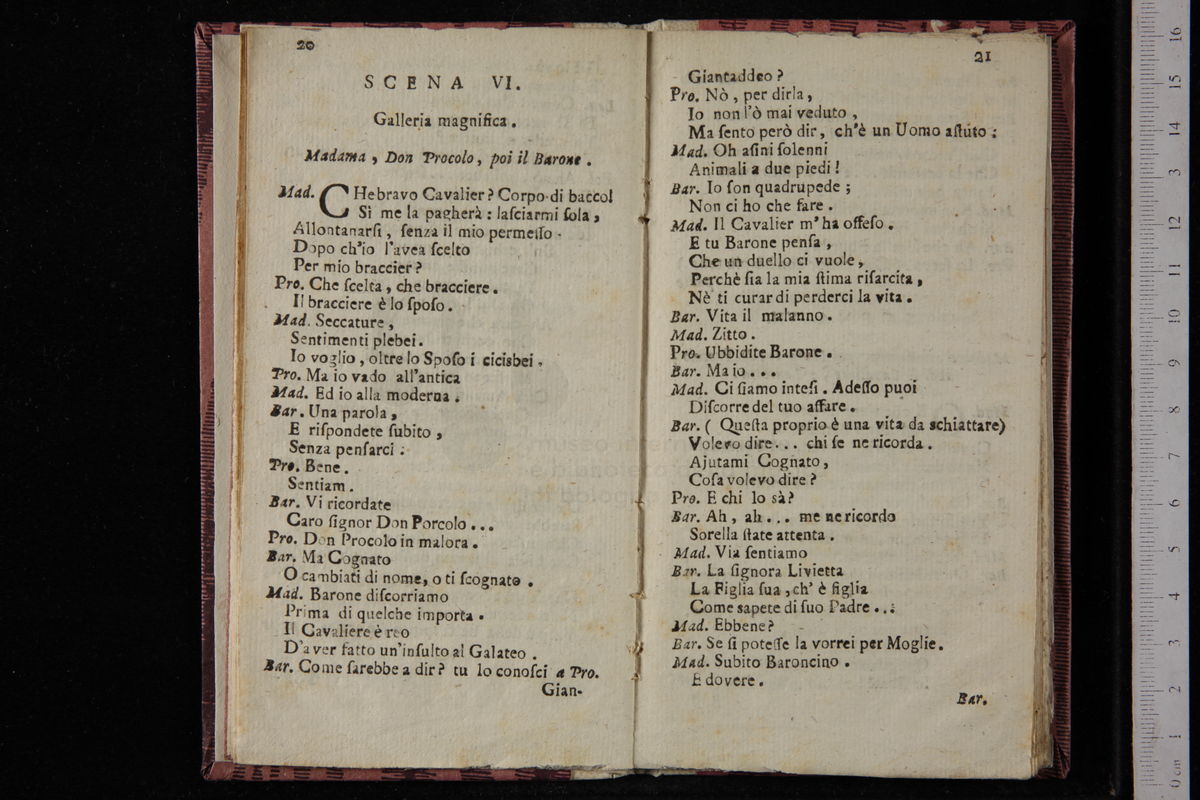 20
SCENA VI.
Galleria magnifica.
Madama, Don Procolo, poi il Barone.
Mad. CHe bravo Cavalier? Corpo di bacco!
Sì me la pagherà: laſciarmi ſola,
Allontanarſi, ſenza il mio permeſſo.
Dopo ch'io l'avea ſcelto
Per mio braccier?
Pro. Che ſcelta, che bracciere.
Il bracciere è lo ſpoſo.
Mad. Seccature,
Sentimenti plebei.
Io voglio, oltre lo Spoſo i cicisbei.
Pro. Ma io vado all'antica
Mad. Ed io alla moderna.
Bar. Una parola,
E riſpondete ſubito,
Senza penſarci:
Pro. Bene.
Sentiam.
Bar. Vi ricordate
Caro ſignor Don Porcolo...
Pro. Don Procolo in malora.
Bar. Ma Cognato
O cambiati di nome, o ti ſcognato.
Mad. Barone diſcorriamo
Prima di quelche importa.
Il Cavaliere è reo
D'aver fatto un'inſulto al Galateo.
Bar. Come ſarebbe a dir? tu lo conoſci a Pro.
Gian-
21
Giantaddeo?
Pro. Nò, per dirla,
Io non l'ò mai veduto,
Ma ſento però dir, ch'è un Uomo aſtuto:
Mad. Oh aſini ſolenni
Animali a due piedi!
Bar. Io ſon quadrupede;
Non ci ho che fare.
Mad. Il Cavalier m'ha offeſo.
E tu Barone penſa,
Che un duello ci vuole,
Perchè ſia la mia ſtima riſarcita,
Nè ti curar di perderci la vita.
Bar. Vita il malanno.
Mad. Zitto.
Pro. Ubbidite Barone.
Bar. Ma io...
Mad. Ci ſiamo inteſi. Adeſſo puoi
Diſcorre del tuo affare.
Bar. (Queſta proprio è una vita da schiattare)
Volevo dire... chi ſe ne ricorda.
Ajutami Cognato,
Coſa volevo dire?
Pro. E chi lo sà?
Bar. Ah, ah... me ne ricordo
Sorella ſtate attenta.
Mad. Via ſentiamo
Bar. La ſignora Livietta
La Figlia ſua, ch' è figlia
Come sapete di ſuo Padre...
Mad. Ebbene?
Bar. Se ſi poteſſe la vorrei per Moglie.
Mad. Subito Baroncino.
E dovere.
Bar.
0 cm 1 2 3 4 5 6 7 8 9 10 11 12 13 14 15 16